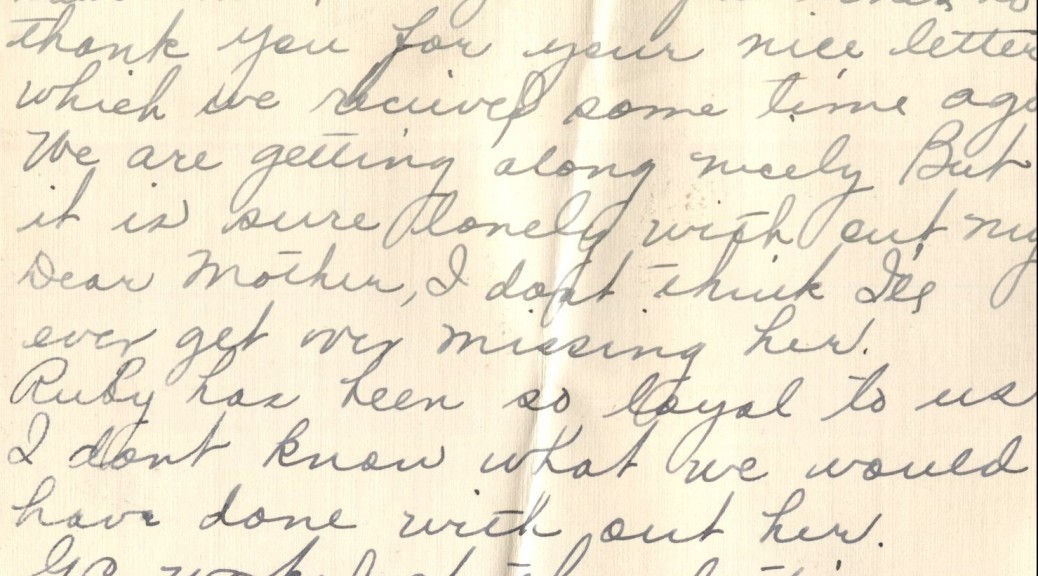 thank you for your nice letter
which we recieved some time ago
We are getting along nicely But
it is sure lonely with out my
Dear Mother, I dont think I'll
ever get over missing her.
Ruby has been so loyal to us
I dont know what we would
have done with out her.